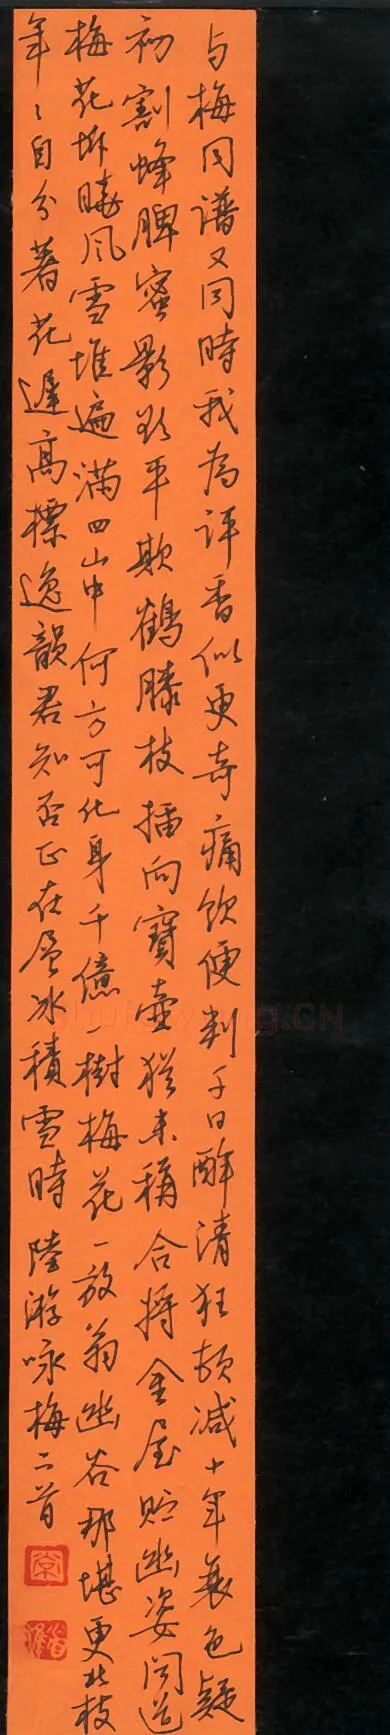 与梅同谱又同時我為评香似更奇痛饮便判千日醉清狂頓減十年衰色疑
初割蜂脾蜜影欲平欺鶴膝枝插向寶壺猶未稱合將金屋贮幽姿闻道
梅花坼曉风雪堆遍满四山中何方可化身千億一樹梅花一放翁幽谷那堪更北枝
年々自分著花遲高標逸韻君知否正在层冰積雪時 陸游咏梅二首